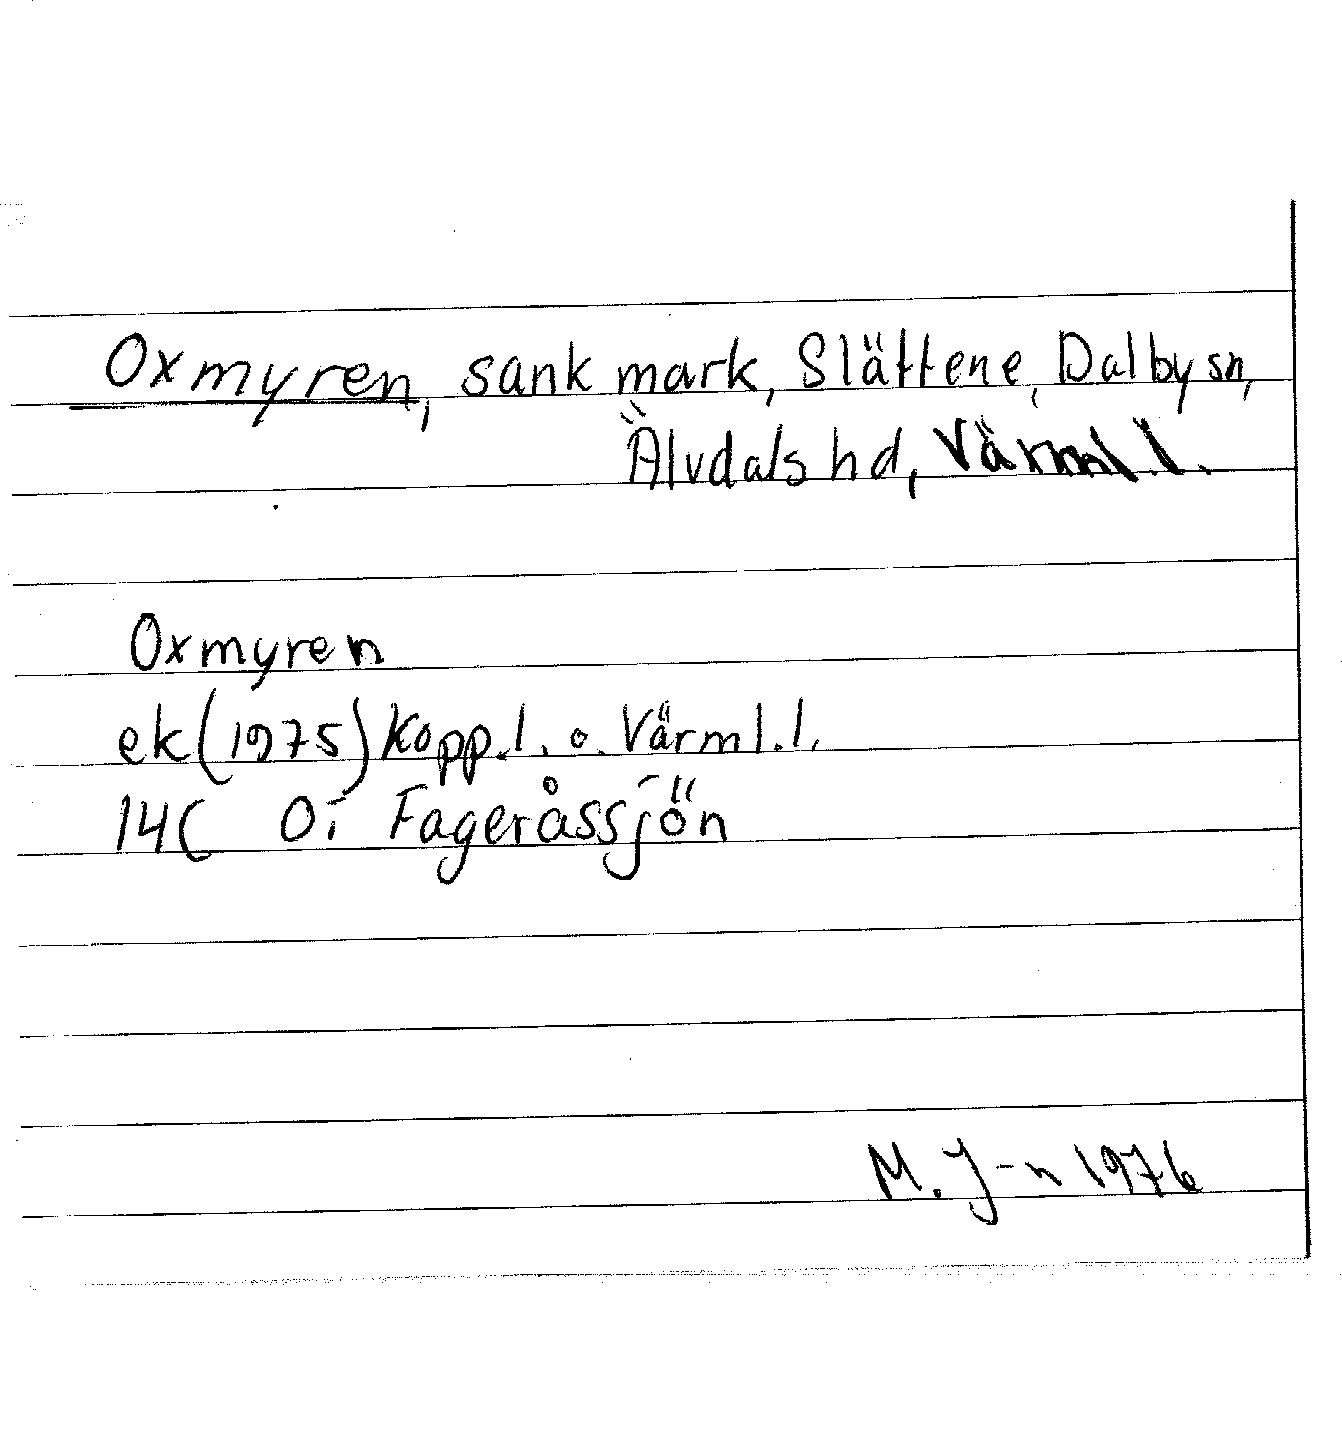 Oxmyren, sank mark, Slättene, Dalby sn,
Älvdals hd, Värml. l.
Oxmyren
ek (1975) Kopp. l. o. Värml. l.
14C Oi Fageråssjön
M. J-n 1976